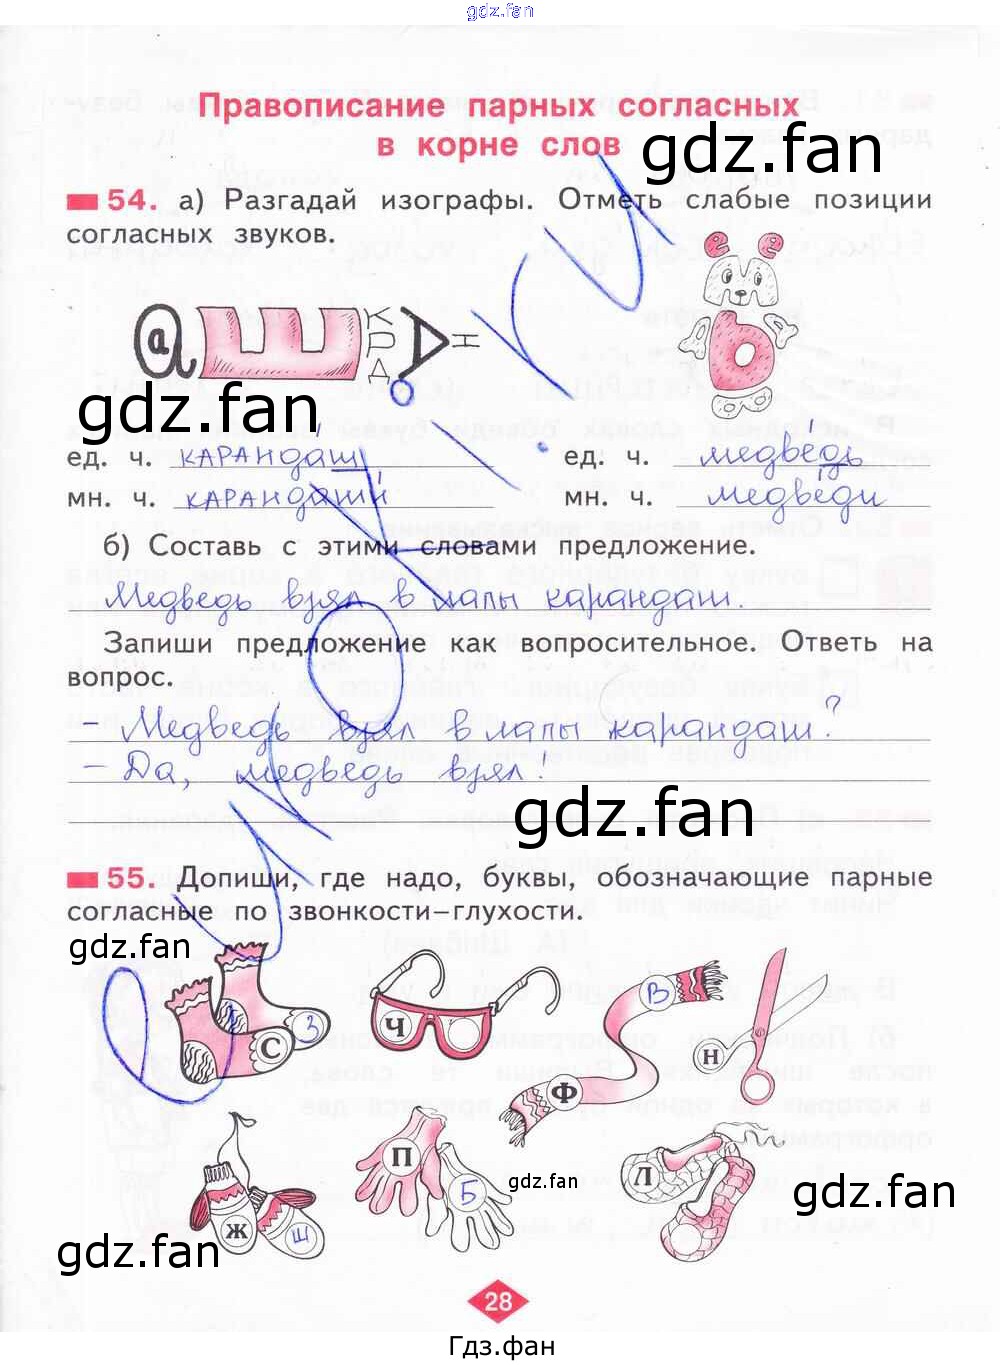 gdz.fan
Правописание парных согласных
в корне слов
gdz.fan
54. а) Разгадай изографы. Отметь слабые позиции
согласных звуков.
gdz.fan
ед. ч. карандаш
ед. ч. медведь
мн. ч. карандаши
мн. ч. медведи
б) Составь с этими словами предложение.
Медведь взял в лапы карандаш.
Запиши предложение как вопросительное. Ответь на
вопрос.
– Медведь взял в лапы карандаш?
– Да, медведь взял.
gdz.fan
55. Допиши, где надо, буквы, обозначающие парные
согласные по звонкости–глухости.
gdz.fan
С З Ч Ф В Н
Ж Ш П Б Л
gdz.fan
gdz.fan
gdz.fan
28
Гдз.фан